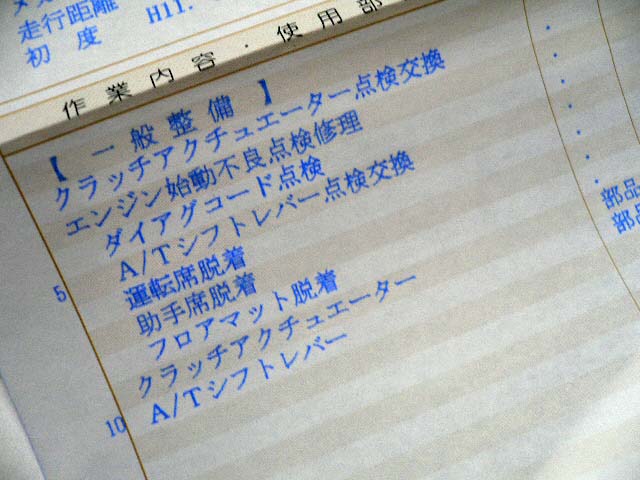 走行距離
初 度 H11.
作 業 内 容 ・ 使 用 部
【 一 般 整 備 】
クラッチアクチュエーター点検交換
エンジン始動不良点検修理
ダイアグコード点検
A/Tシフトレバー点検交換
5 運転席脱着
助手席脱着
フロアマット脱着
クラッチアクチュエーター 部品
A/Tシフトレバー 部品
10